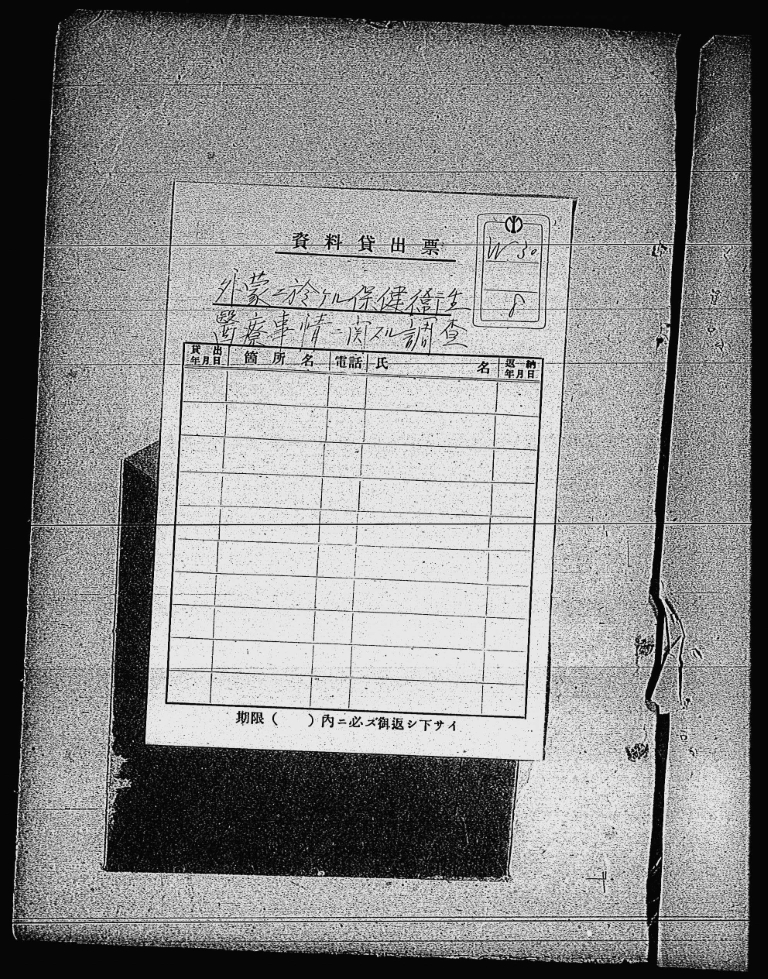 資料貸出票
W 30
8
外蒙ニ於ケル保健衛生
醫療事情ニ関スル調査
貸出年月日 箇所名 電話 氏名 返納年月日
期限（　　）內ニ必ズ御返シ下サイ